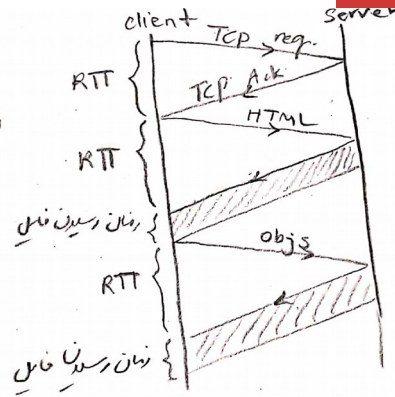 client
server
TCP req.
RTT
TCP Ack
HTML
RTT
زمان رسیدن فایل
objs
RTT
زمان رسیدن فایل